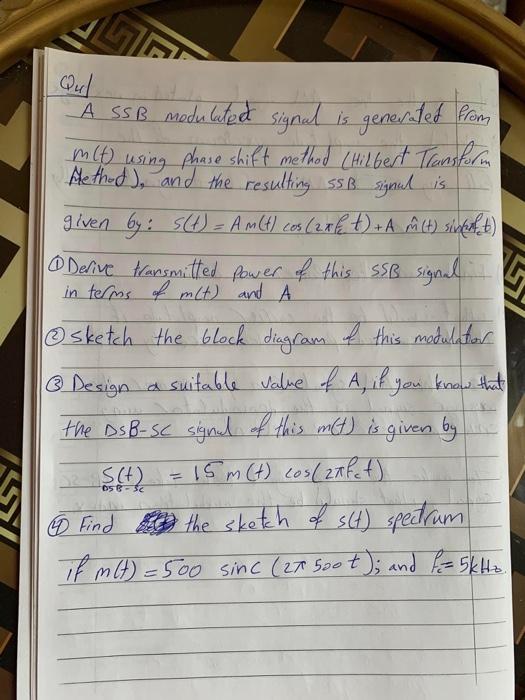 Qu/
A SSB modulated signal is generated from
m(t) using phase shift method (Hilbert Transform
Method), and the resulting SSB signal is
given by: s(t) = A m(t) cos(2πfc t) + A m̂(t) sin(2πfc t)
① Derive transmitted power of this SSB signal
in terms of m(t) and A
② sketch the block diagram of this modulator
③ Design a suitable value of A, if you know that
the DSB-SC signal of this m(t) is given by
S(t) DSB-SC = 15 m(t) cos(2πfct)
④ Find the sketch of s(t) spectrum
if m(t) = 500 sinc (2π 500 t); and fc = 5kHz.